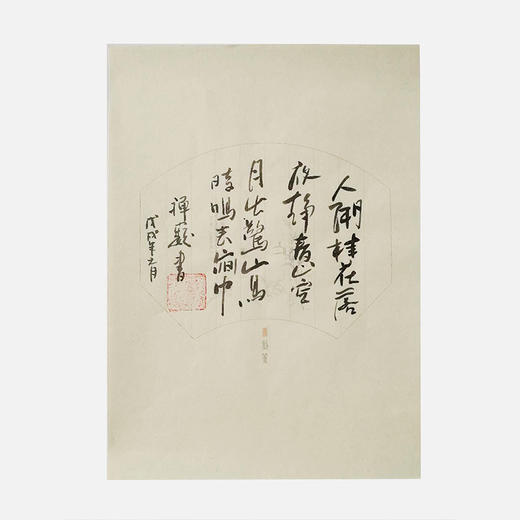 人閒桂花落
夜静春山空
月出驚山鳥
時鳴春澗中
禅書
戊戌年月